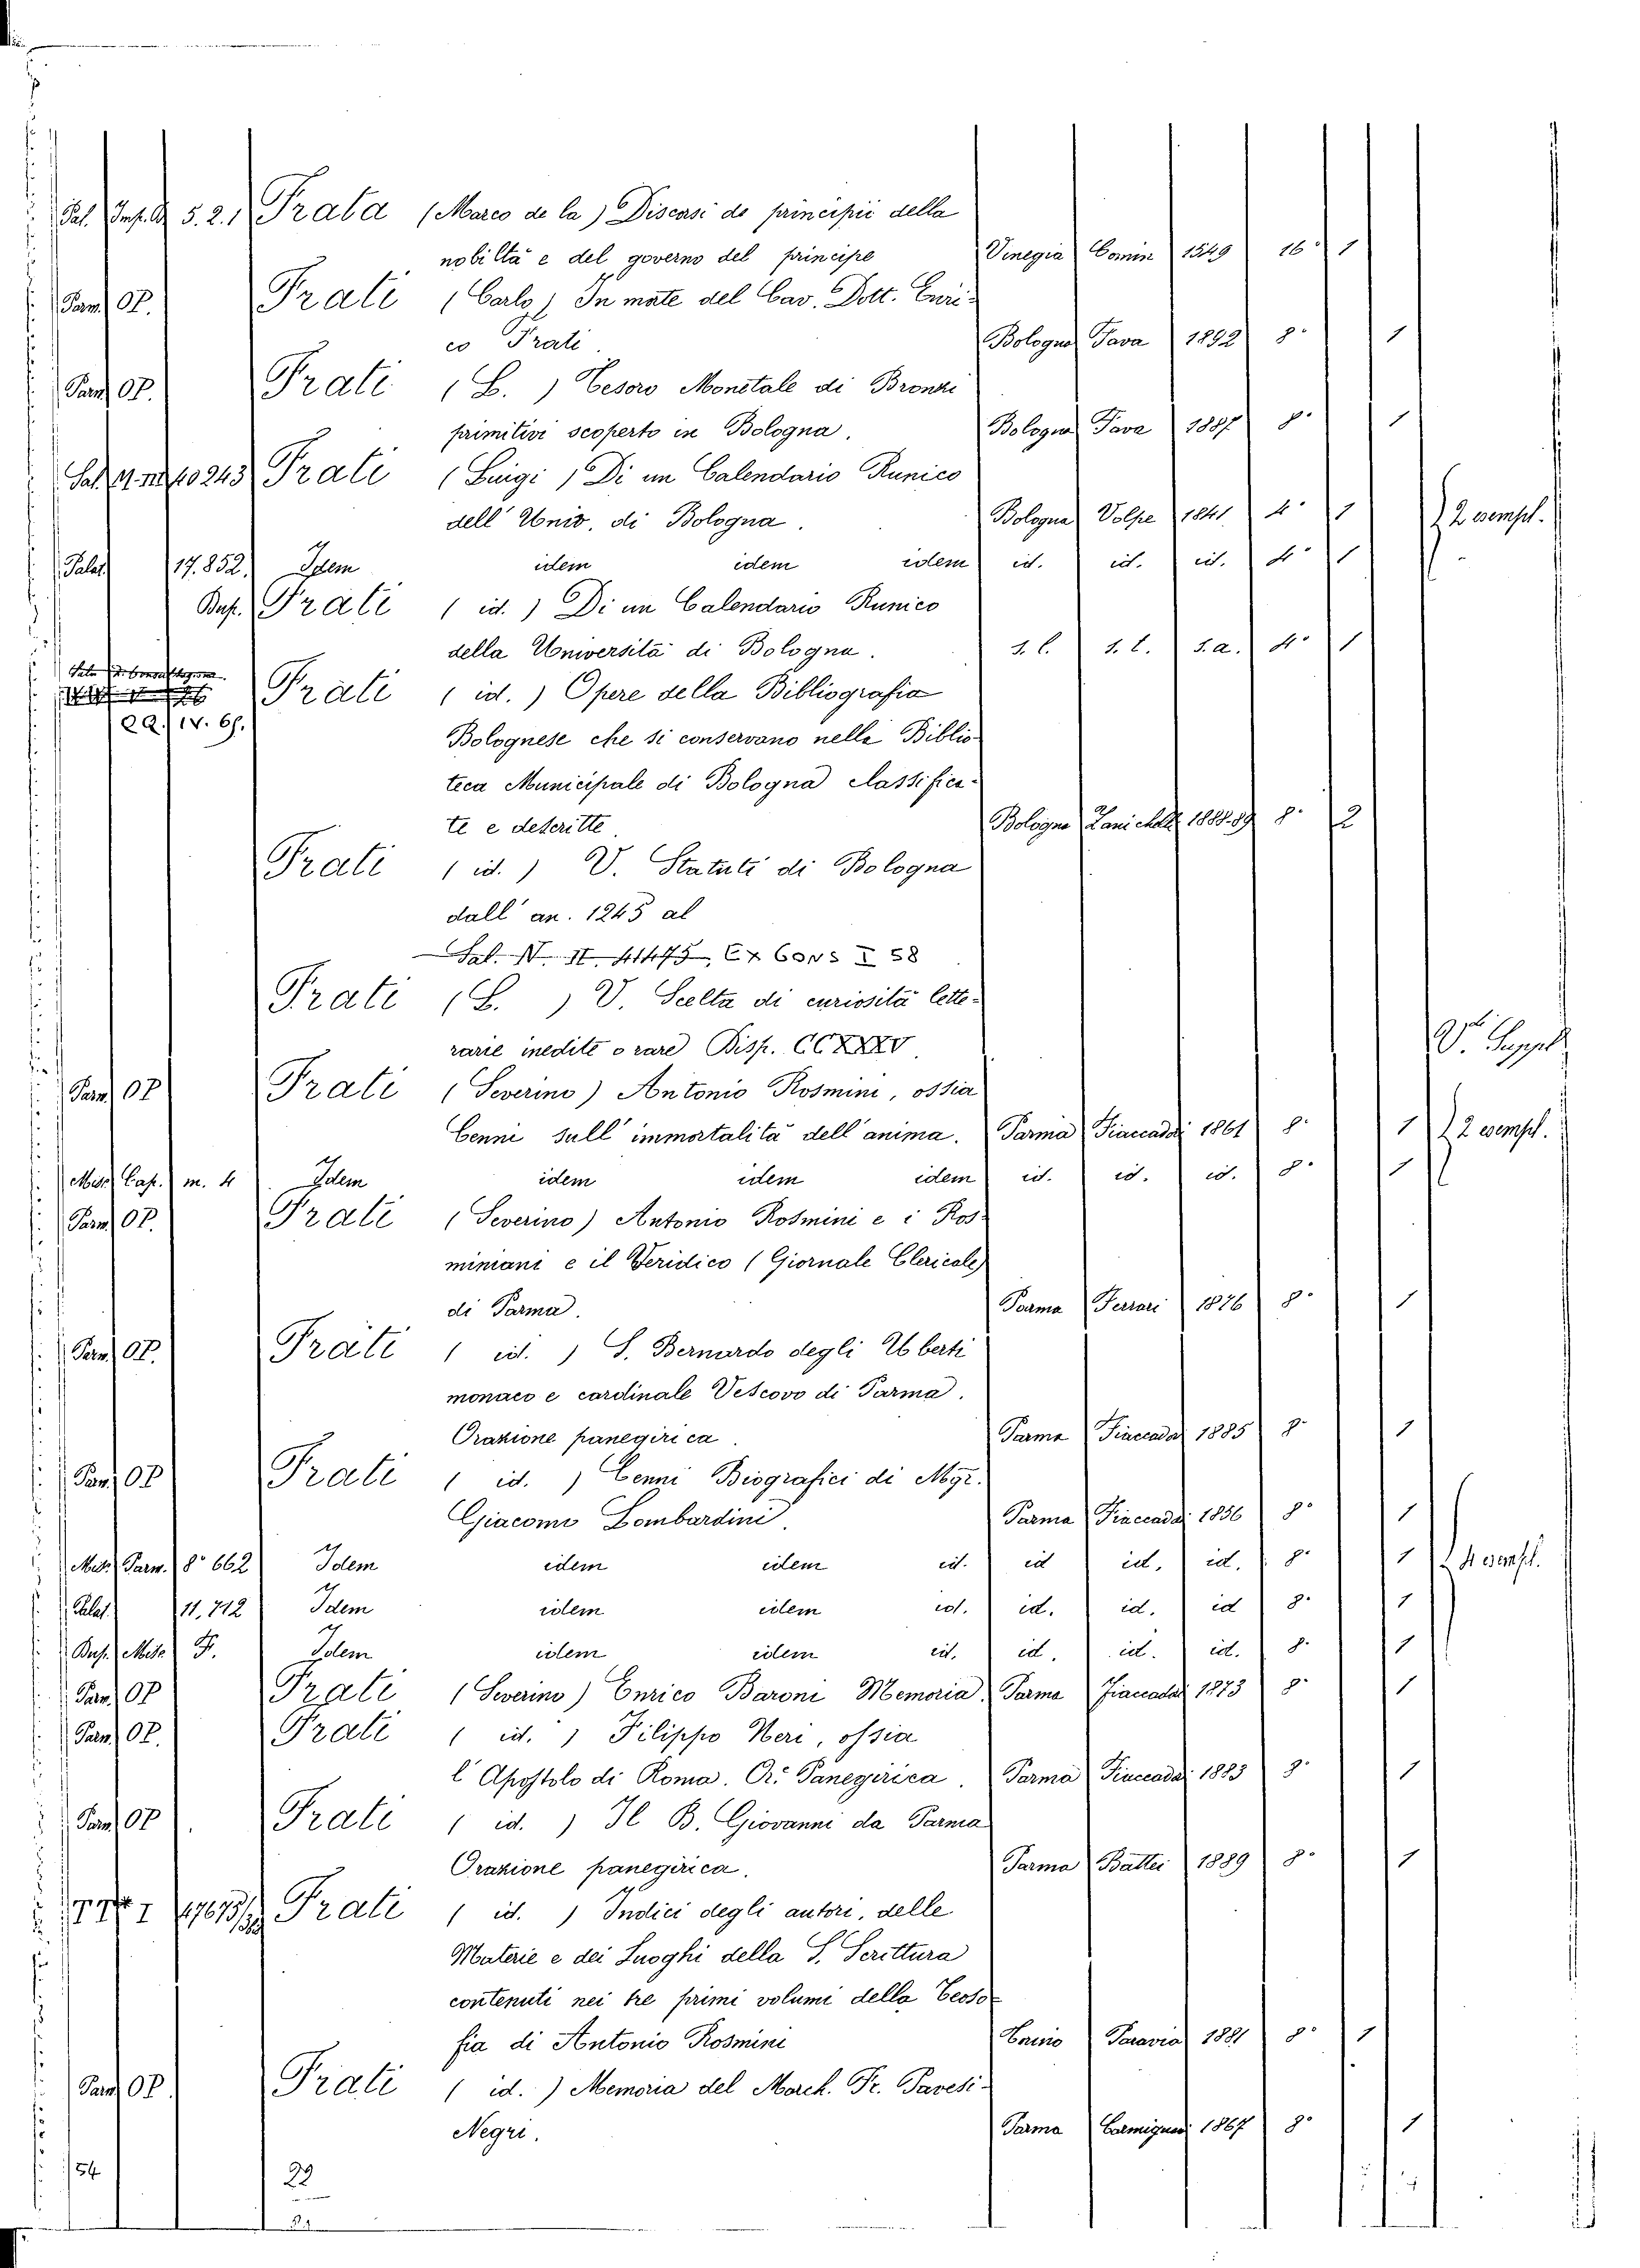 Pal. Imp. 5. 2. 1 Prata (Marco de la) Discorsi de principii della
nobiltà e del governo del principe Venegia Comin 1549 16° 1
Parm. OP. Prati (Carlo) In mate del Cav. Dott. Enri-
co Prati. Bologna Fava 1892 8° 1
Parm. OP. Prati (B.) Tesoro Monetale di Bronzi
primitivi scoperto in Bologna. Bologna Fava 1887 8° 1
Sal. 10243 Prati (Luigi) Di un Calendario Runico
dell' Univ. di Bologna. Bologna Volpe 1841 4° 1 2 esempl.
Palat. 17.852. Idem idem idem idem id. id. id. 4° 1
Buf. Prati (id.) Di un Calendario Runico
della Università di Bologna. s. l. s. l. s. a. 4° 1
Prati (id.) Opere della Bibliografia
22. IV. 67.
Bolognese che si conservano nella Biblio-
teca Municipale di Bologna classifica-
te e descritte. Bologna Zanichelli 1888.89 8° 2
Prati (id.) V. Statuti di Bologna
dall' an. 1245 al
Sal. N. II. 41475, Ex Cons I 58
Prati (L.) V. Scelta di curiosità lette-
rarie inedite o rare Disp. CCXXXV. V. Suppl
Parm. OP Prati (Severino) Antonio Rosmini, ossia
Cenni sull' immortalità dell' anima. Parma Fiaccadori 1861 8° 1 2 esempl.
Misc. Cap. m. 4 Idem idem idem idem id. id. id. 8° 1
Parm. OP. Prati (Severino) Antonio Rosmini e i Ros-
miniani e il Veridico (Giornale Clericale)
di Parma. Parma Ferrari 1876 8° 1
Parm. OP. Prati (id.) S. Bernardo degli Uberti
monaco e cardinale Vescovo di Parma.
Orazione panegirica. Parma Fiaccadori 1885 8° 1
Parm. OP Prati (id.) Cenni Biografici di Mgr.
Giacomo Lombardini. Parma Fiaccadori 1856 8° 1
Misc. Parm. 8° 662 Idem idem idem id. id id. id. 8° 1 4 esempl.
Palat. 11.712 Idem idem idem id. id. id. id 8° 1
Buf. Misc. F. Idem idem idem id. id. id. id. 8° 1
Parm. OP Prati (Severino) Enrico Baroni Memoria. Parma Fiaccadori 1873 8° 1
Parm. OP. Prati (id.) Filippo Neri, ossia
l' Apostolo di Roma. Or: Panegirica. Parma Fiaccadori 1883 8° 1
Parm. OP Prati (id.) Il B. Giovanni da Parma
Orazione panegirica. Parma Battei 1889 8° 1
Prati (id.) Indici degli autori, delle
Materie e dei Luoghi della S. Scrittura
contenuti nei tre primi volumi della Teoso-
fia di Antonio Rosmini Torino Paravia 1881 8° 1
Parm. OP. Prati (id.) Memoria del March. Fr. Pavesi-
Negri. Parma Carmignani 1867 8° 1
54 22